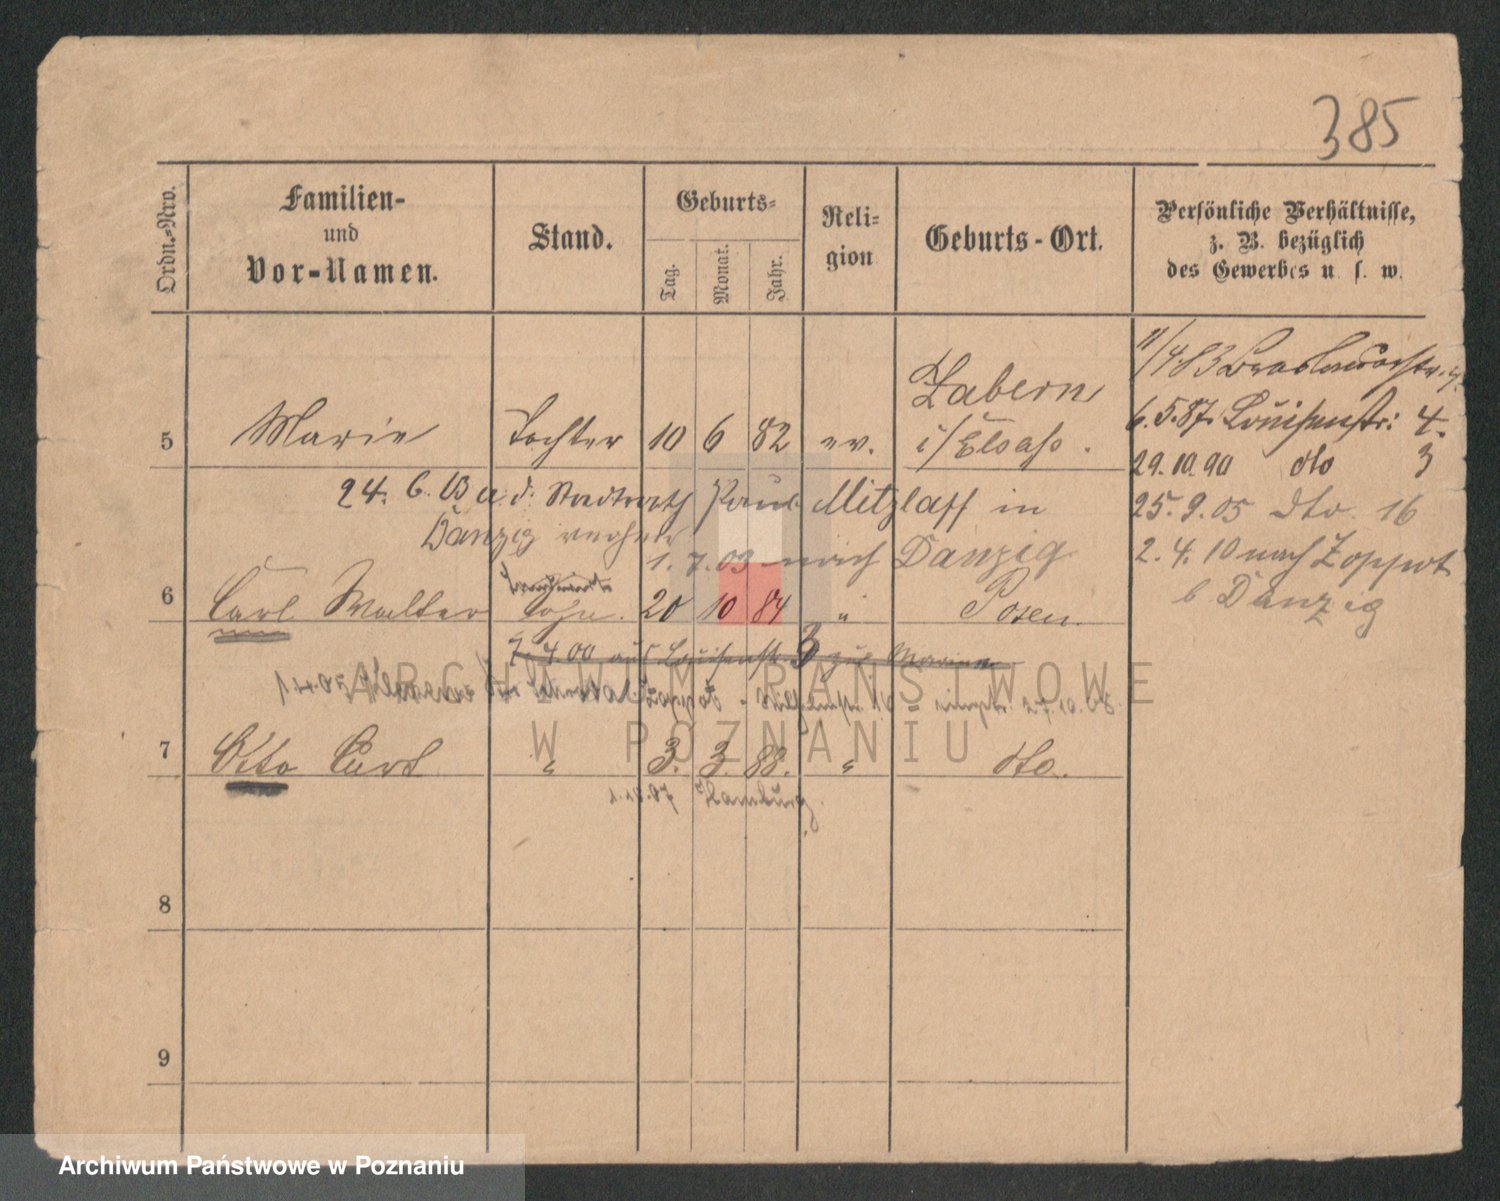 385
Ordn.-Nro.
Familien-
und
Vor-Namen.
Stand.
Geburts-
Tag.
Monat.
Jahr.
Reli-
gion
Geburts-Ort.
Persönliche Verhältnisse,
z. B. bezüglich
des Gewerbes u. s. w.
5 Marie Tochter 10 6 82 ev. Zabern
i/Elsass.
11/4 83 Breslauerstr.
6.5.87. Louisenstr: 4.
29.10.90 dto 3
25.9.05 dto. 16
2.4.10 nach Zoppot
b Danzig
24. 6. 03 a. d. Stadtrath Paul Mitzlaff in
Danzig verh.
1.7.03 nach Danzig
6 Carl Walter Sohn. 20 10 84 " Posen.
7.4.00 auf Louisenstr. 3 zur Marine
27.10.08.
7 Otto Curt " 3. 3. 88. " dto.
Hamburg.
8
9
ARCHIWUM PAŃSTWOWE
W POZNANIU
Archiwum Państwowe w Poznaniu